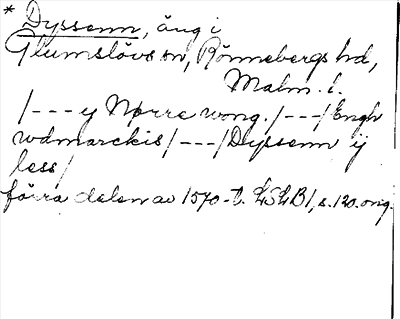 * Dyssenn, äng i
Glumslövs sn, Rönnebergs hd,
Malm. l.
/--- y Nørre wong. /---/ Engh
udmarckis /---/ Dyssenn ij
less/
förra delen av 1570-t. LSLB 1, s. 120. orig.